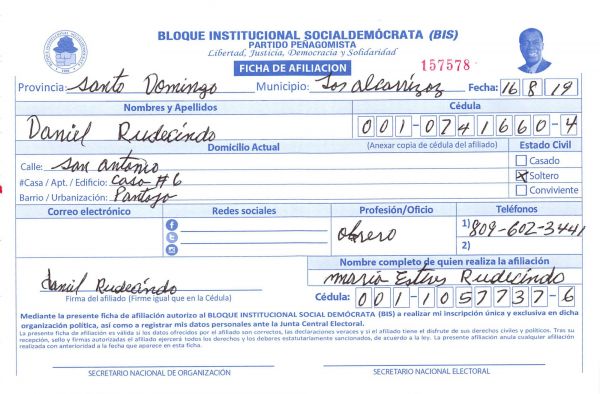 BLOQUE INSTITUCIONAL SOCIALDEMÓCRATA (BIS)
PARTIDO PEÑAGOMISTA
Libertad, Justicia, Democracia y Solidaridad
FICHA DE AFILIACION 157578
Provincia: Santo Domingo Municipio: Los alcarrizoz Fecha: 16 8 19
Nombres y Apellidos Cédula
Daniel Rudecindo 001-0741660-4
Domicilio Actual (Anexar copia de cédula del afiliado) Estado Civil
Calle: San antonio Casado
#Casa / Apt. / Edificio: Casa #6 Soltero
Barrio / Urbanización: Pantojo Conviviente
Correo electrónico Redes sociales Profesión/Oficio Teléfonos
obrero 1) 809-602-3441
2)
Nombre completo de quien realiza la afiliación
Daniel Rudecindo maria Esteves Rudecindo
Firma del afiliado (Firme igual que en la Cédula) Cédula: 001-1057737-6
Mediante la presente ficha de afiliación autorizo al BLOQUE INSTITUCIONAL SOCIAL DEMÓCRATA (BIS) a realizar mi inscripción única y exclusiva en dicha
organización política, así como a registrar mis datos personales ante la Junta Central Electoral.
La presente ficha de afiliación es válida si los datos ofrecidos por el afiliado son correctos, las declaraciones veraces y si el afiliado tiene el disfrute de sus derechos civiles y políticos. Tras su
recepción, sello y firmas autorizadas el afiliado ejercerá todos los derechos y los debates estatutariamente sancionados, de acuerdo a la ley. La presente afiliación anula cualquier afiliación
realizada con anterioridad a la fecha que aparece en esta ficha.
SECRETARIO NACIONAL DE ORGANIZACIÓN SECRETARIO NACIONAL ELECTORAL